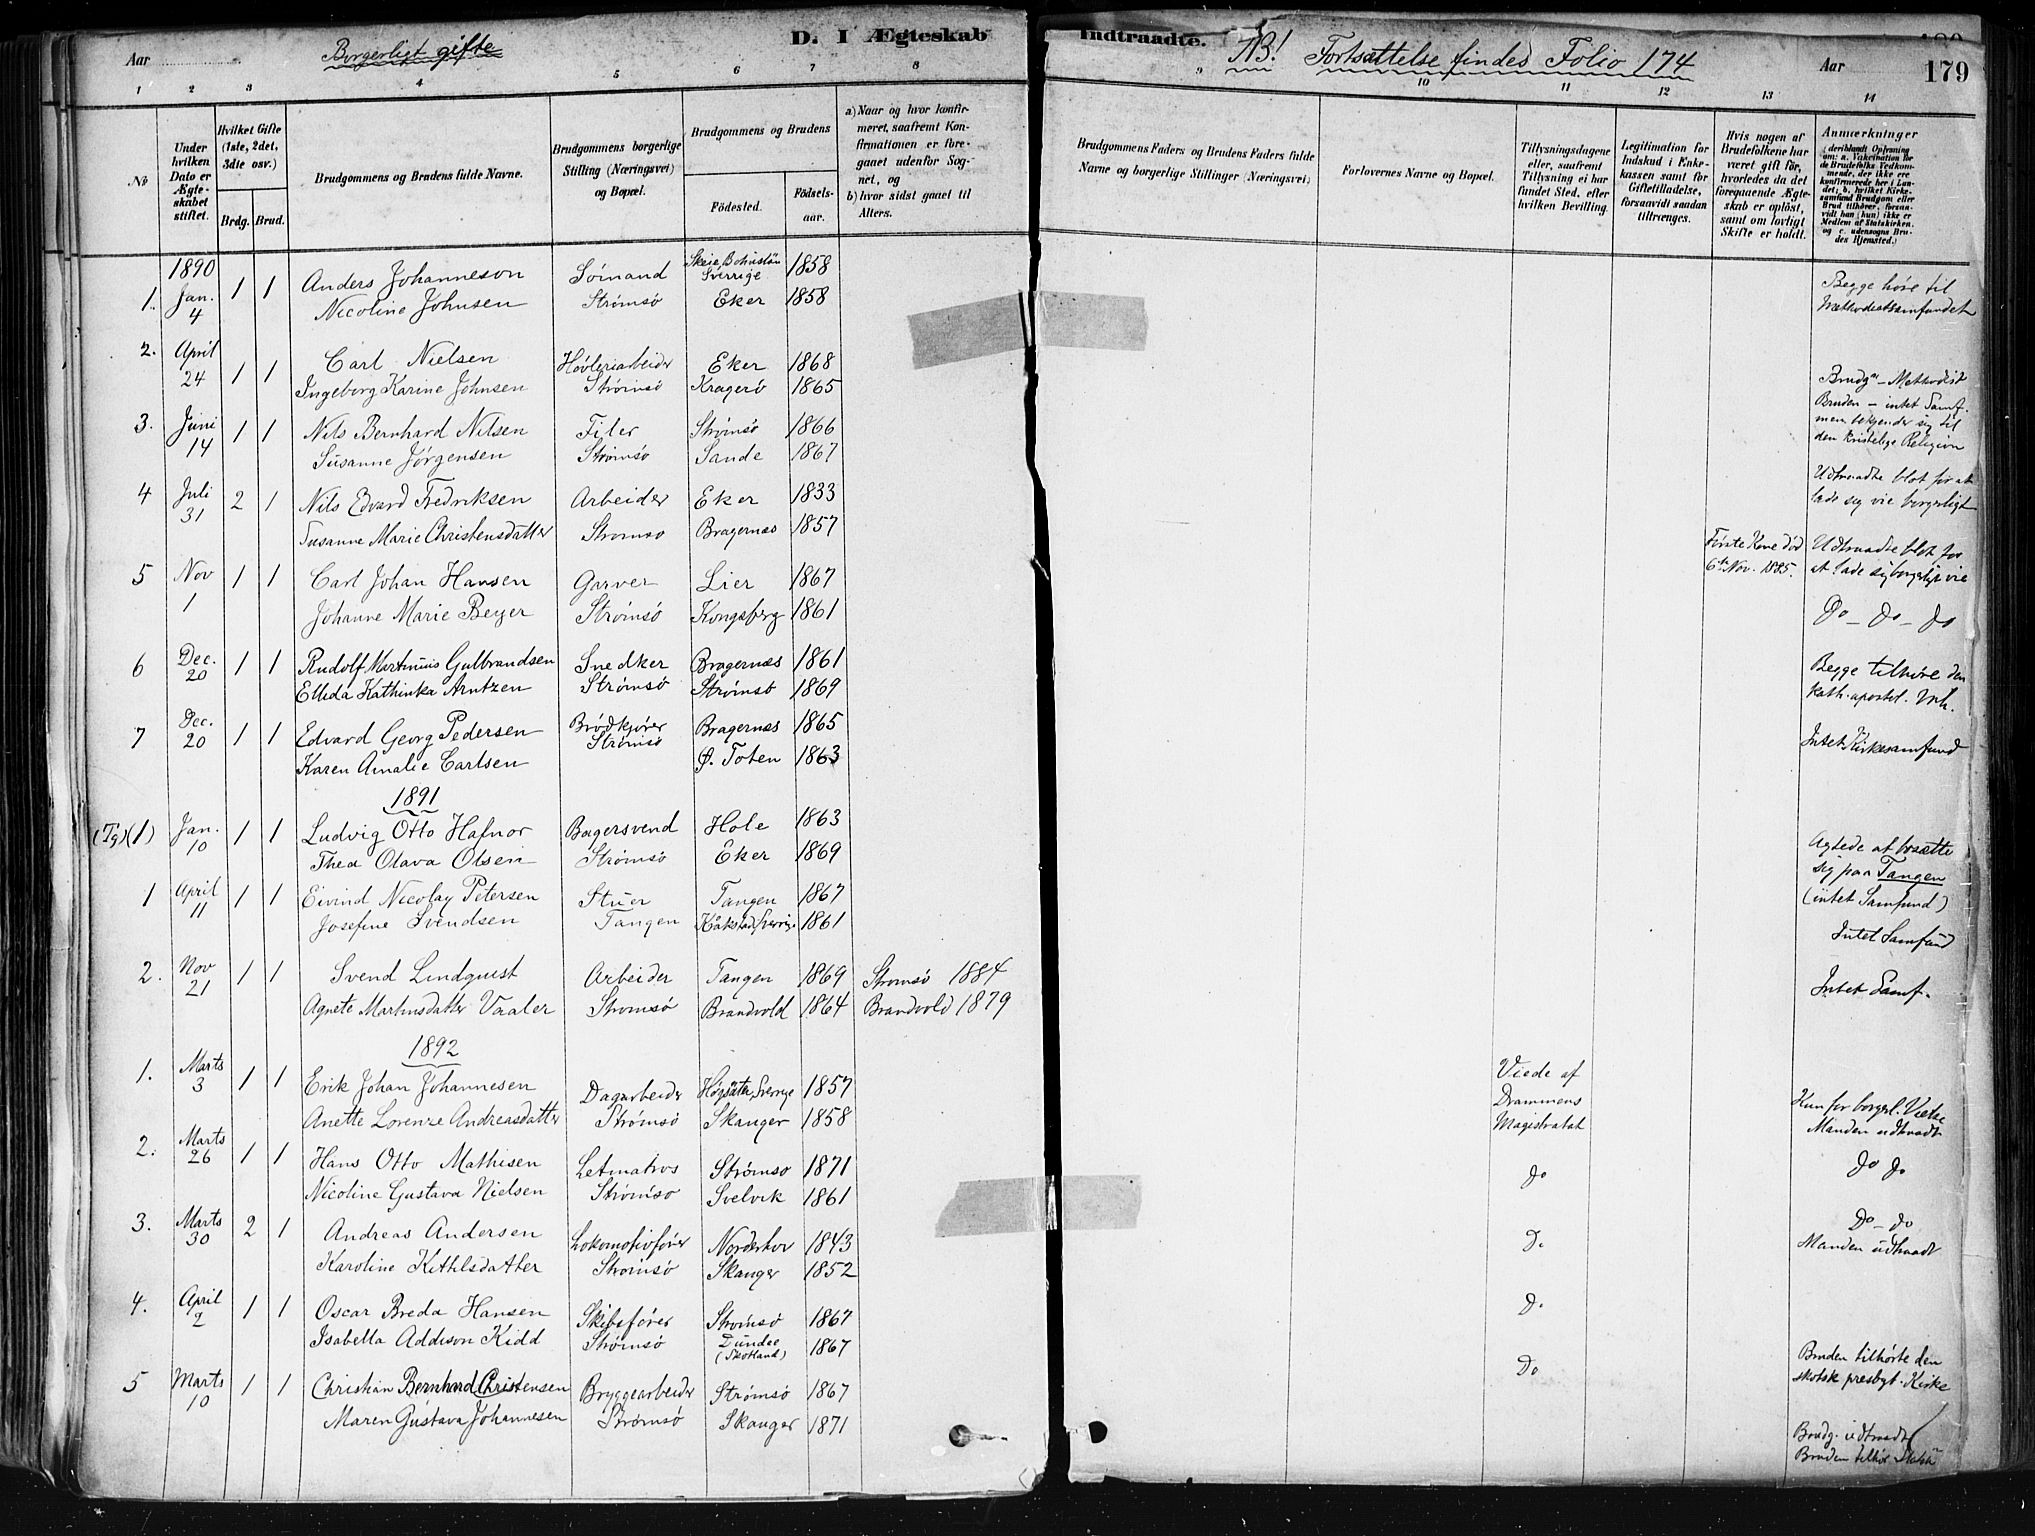 Aar
Borgerligt gifte
D. I Ægteskab Indtraadte.
NB! Fortsættelse findes Folio 174
Aar
179
1 2 3 4 5 6 7 8 9 10 11 12 13 14
No
Under hvilken Dato er Ægteskabet stiftet.
Hvilket Gifte (1ste, 2det, 3die osv.)
Brdg. Brud.
Brudgommens og Brudens fulde Navne.
Brudgommens borgerlige Stilling (Næringsvei) og Bopæl.
Brudgommens og Brudens
Fødested.
Fødsels-aar.
a) Naar og hvor konfirmeret, saafremt Konfirmationen er foregaaet udenfor Sognet, og
b) hvor sidst gaaet til Alters.
Brudgommens Faders og Brudens Faders fulde Navne og borgerlige Stillinger (Næringsvei)
Forlovernes Navne og Bopæl.
Tillysningsdagene eller, saafremt Tillysning ei har fundet Sted, efter hvilken Bevilling.
Legitimation for Indskud i Enkekassen samt for Giftetilladelse, forsaavidt saadan tiltrænges.
Hvis nogen af Brudefolkene har været gift før, hvorledes da det foregaaende Ægteskab er opløst, samt om lovligt Skifte er holdt.
Anmærkninger (deriblandt Oplysning om: a. Vakcination for de Brudefolks Vedkommende, der ikke ere konfirmerede her i Landet; b. hvilket Kirkesamfund Brudgom eller Brud tilhører, forsaavidt han (hun) ikke er Medlem af Statskirken, og c. udensogns Brudes Hjemsted.)
1890
1. Jan. 4 1 1 Anders Johanneson Sømand Skeie, Bohuslän Sverrige 1858
Nicoline Johnsen Strømsø Eker 1858
Begge høre til
Methodistsamfundet
2. April 24 1 1 Carl Nielsen Høvleriarbeider Eker 1868
Ingeborg Karine Johnsen Strømsø Kragerø 1865
Brudg. – Methodist
Bruden – intet Samf.
men bekjender sig til
den kristelige Religion
3. Juni 14 1 1 Nils Bernhard Nilsen Filer Strømsø 1866
Susanne Jørgensen Strømsø Sande 1867
Udtraadte blot for at
lade sig vie borgerligt
4 Juli 31 2 1 Nils Edvard Fredriksen Arbeider Eker 1833
Susanne Marie Christensdatter Strømsø Bragernæs 1857
Første Kone død
6te Nov. 1885.
Udtraadte blot for
at lade sig borgerligt vie
5 Nov 1 1 1 Carl Johan Hansen Garver Lier 1867
Johanne Marie Beyer Strømsø Kongsberg 1861
Do – do – do
6 Dec. 20 1 1 Rudolf Martinius Gulbrandsen Snedker Bragernæs 1861
Ellida Kathinka Arntzen Strømsø Strømsø 1869
Begge tilhøre den
kath. apostol. Mh.
7 Dec. 20 1 1 Edvard Georg Pedersen Brødkjører Bragernæs 1865
Strømsø
Karen Amalie Carlsen Ø. Toten 1863
Intet Kirkesamfund
1891
(Tg)(1) Jan. 10 1 1 Ludvig Otto Hafnor Bagersvend Hole 1863
Thea Olava Olsen Strømsø Eker 1869
Agtede at bosætte
sig paa Tangen
(intet Samfund)
1 April 11 1 1 Eivind Nicolay Petersen Stuer Tangen 1867
Josefine Svendsen Tangen Kåkstad, Sverrige 1861
Intet Samfund
2. Nov 21 1 1 Svend Lindquist Arbeider Tangen 1869 Strømsø 1884
Agnete Martinsdatter Vaaler Strømsø Brandvold 1864 Brandvold 1879
Intet Samf.
1892
1. Marts 3 1 1 Erik Johan Johannesen Dagarbeider Högsäter, Sverrige 1857
Anette Lorenze Andreasdatter Strømsø Skanger 1858
Viede af
Drammens
Magistratat
Kun for borgerl. Vielse
Manden udtraadt
2. Marts 26 1 1 Hans Otto Mathisen Letmatros Strømsø 1871
Nicoline Gustava Nielsen Strømsø Svelvik 1861
do
do do
3. Marts 30 2 1 Andreas Andersen Lokomotivfører Norderhov 1843
Karoline Kittilsdatter Strømsø Skanger 1852
D.
Do – do
Manden udtraadt
4. April 2 1 1 Oscar Breda Hansen Skibsfører Strømsø 1867
Isabella Addison Kidd Strømsø Dundee (Skotland) 1867
D.
Bruden tilhørte den
skotsk presbyt. Kirke
5 Marts 10 1 1 Christian Bernhard Christensen Bryggearbeider Strømsø 1867
Maren Gustava Johannesen Strømsø Skanger 1871
Do
Brudg. udtraadt
Bruden tilhør